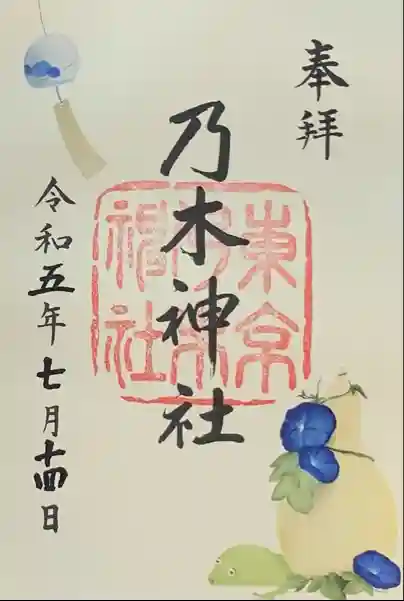 奉拝
東京
乃木
神社
乃木神社
令和五年七月十四日